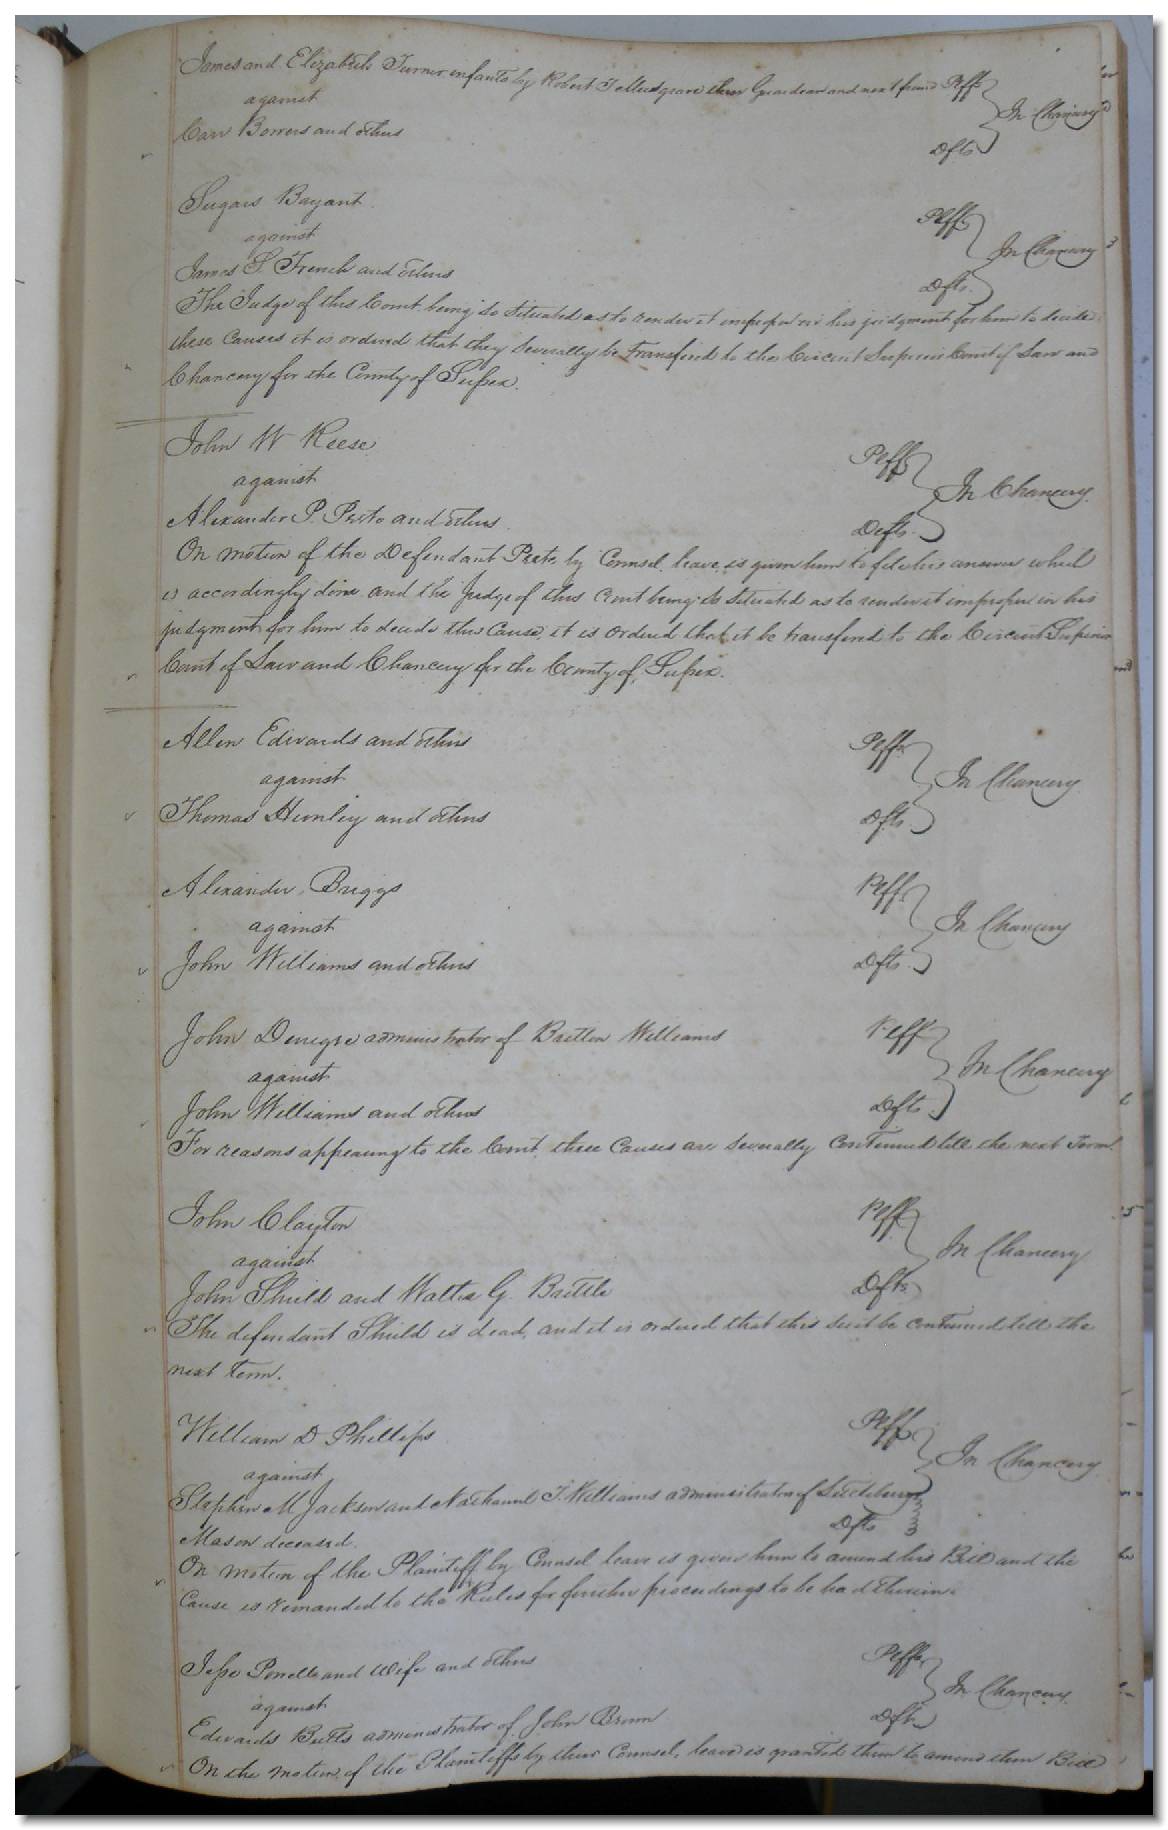 James and Elizabeth Turner infants by Robert their Guardian and next friend Plffs
against In Chancery
Carr Bowers and others
Dfts
Sugars Bryant Plff
against In Chancery
James S. French and others Dfts.
The Judge of this Court being so situated as to render it improper in his judgment for him to decide
these Causes it is ordered that they severally be transfered to the Circuit Superior Court of Law and
Chancery for the County of Sussex.
John W Reese Plff
against In Chancery.
Alexander P. Peete and others Defts.
On motion of the Defendant Peete by Counsel, leave is given him to file his answer which
is accordingly done and the Judge of this Court being so situated as to render it improper in his
judgment for him to decide this Cause, it is ordered that it be transfered to the Circuit Superior
Court of Law and Chancery for the County of Sussex.
Allen Edwards and others Plffs
against In Chancery
Thomas Hunley and others Dfts.
Alexander Briggs Plff
against In Chancery
John Williams and others Dfts.
John Denegre administrator of Britton Williams Plff
against In Chancery
John Williams and others Dfts.
For reasons appearing to the Court, these Causes are severally Continued till the next Term.
John Clayton Plff
against In Chancery
John Shield and Walter G. Brittle Dfts.
The defendant Shield is dead, and it is ordered that this suit be continued till the
next term.
William D Phillips Plff
against In Chancery
Stephen M Jackson and Nathaniel T. Williams administrator of Littlebury
Dfts
Mason deceased.
On motion of the Plaintiff by Counsel leave is given him to amend his Bill and the
Cause is remanded to the Rules for further proceedings to be had therein.
Jesse Powell and Wife and others Plffs
against In Chancery.
Edwards Butts administrator of John Brown Dft.
On the motion of the Plaintiffs by their Counsel, leave is granted them to amend their Bill